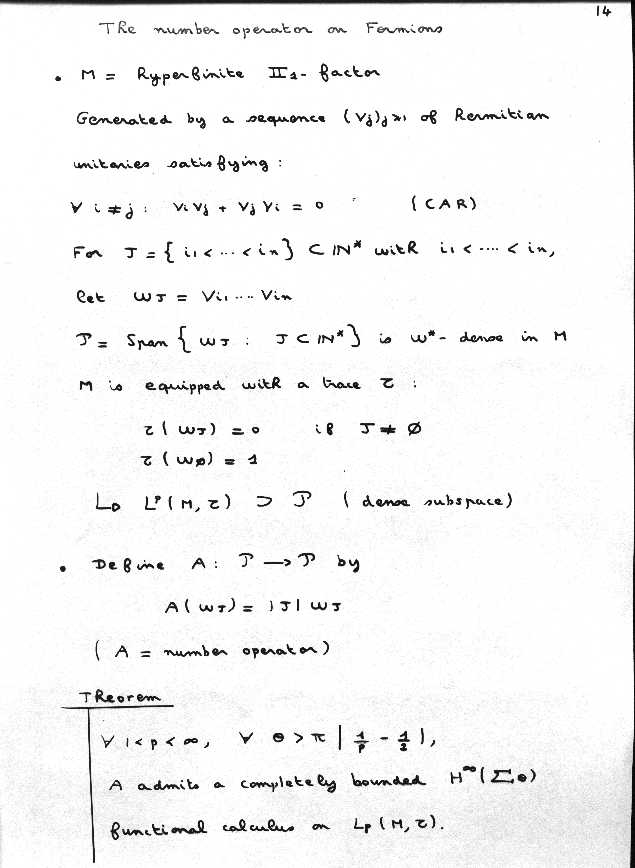 14
The number operator on Fermions
• M = Hyperfinite II1 - factor
Generated by a sequence (Vj)j≥1 of Hermitian
unitaries satisfying :
∀ i ≠ j : ViVj + VjVi = 0 (CAR)
For J = { i1 < ... < in } ⊂ IN* with i1 < .... < in,
let wJ = Vi1 .... Vin
P = Span { wJ : J ⊂ IN* } is w* - dense in M
M is equipped with a trace τ :
τ(wJ) = 0 if J ≠ ∅
τ(w∅) = 1
↳ Lp(M, τ) ⊃ P (dense subspace)
• Define A : P → P by
A(wJ) = |J| wJ
(A = number operator)
Theorem
∀ 1 < p < ∞, ∀ θ > π | 1/p - 1/2 |,
A admits a completely bounded H∞(Σθ)
functional calculus on Lp(M, τ).